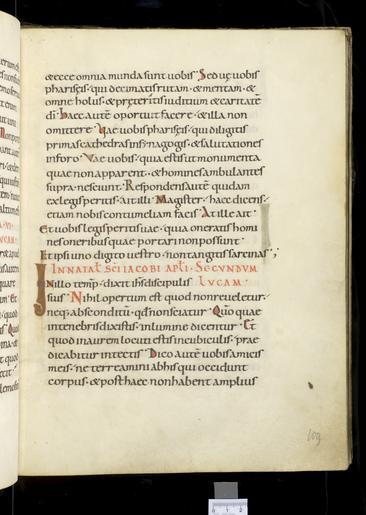 & ecce omnia munda sunt uobis. Sed uę uobis
pharisęis. qui decimatis rutam. & mentam. &
omne holus. & pręteritis iuditium & caritatē
di. haec autē oportuit facere. & illa non
omittere. Vae uobis pharisęis. qui diligitis
primas cathedras in synagogis. & salutationes
in foro. Vae uobis. quia estis ut monumenta
quae non apparent. & homines ambulantes
supra nesciunt. Respondens autē quidam
ex legis peritis. ait illi. Magister. haec dicens.
etiam nobis contumeliam facis. At ille ait.
Et uobis legis peritis uae. quia oneratis homi
nes oneribus quae portari non possunt.
Et ipsi uno digito uestro. non tangitis sarcinas.
IN NAIAT SCI IACOBI APLI. SECUNDUM
In illo tempr. dixit ihs discipulis LUCAM.
suis. Nihil opertum est quod non reueletur.
neq; absconditū. qd non sciatur. Quō quae
in tenebris dixistis. in lumine dicentur. Et
quod in aurem locuti estis in cubiculis. prae
dicabitur in tectis. Dico autē uobis amicis
meis. ne terreamini ab his qui occidunt
corpus. & post haec non habent amplius
109